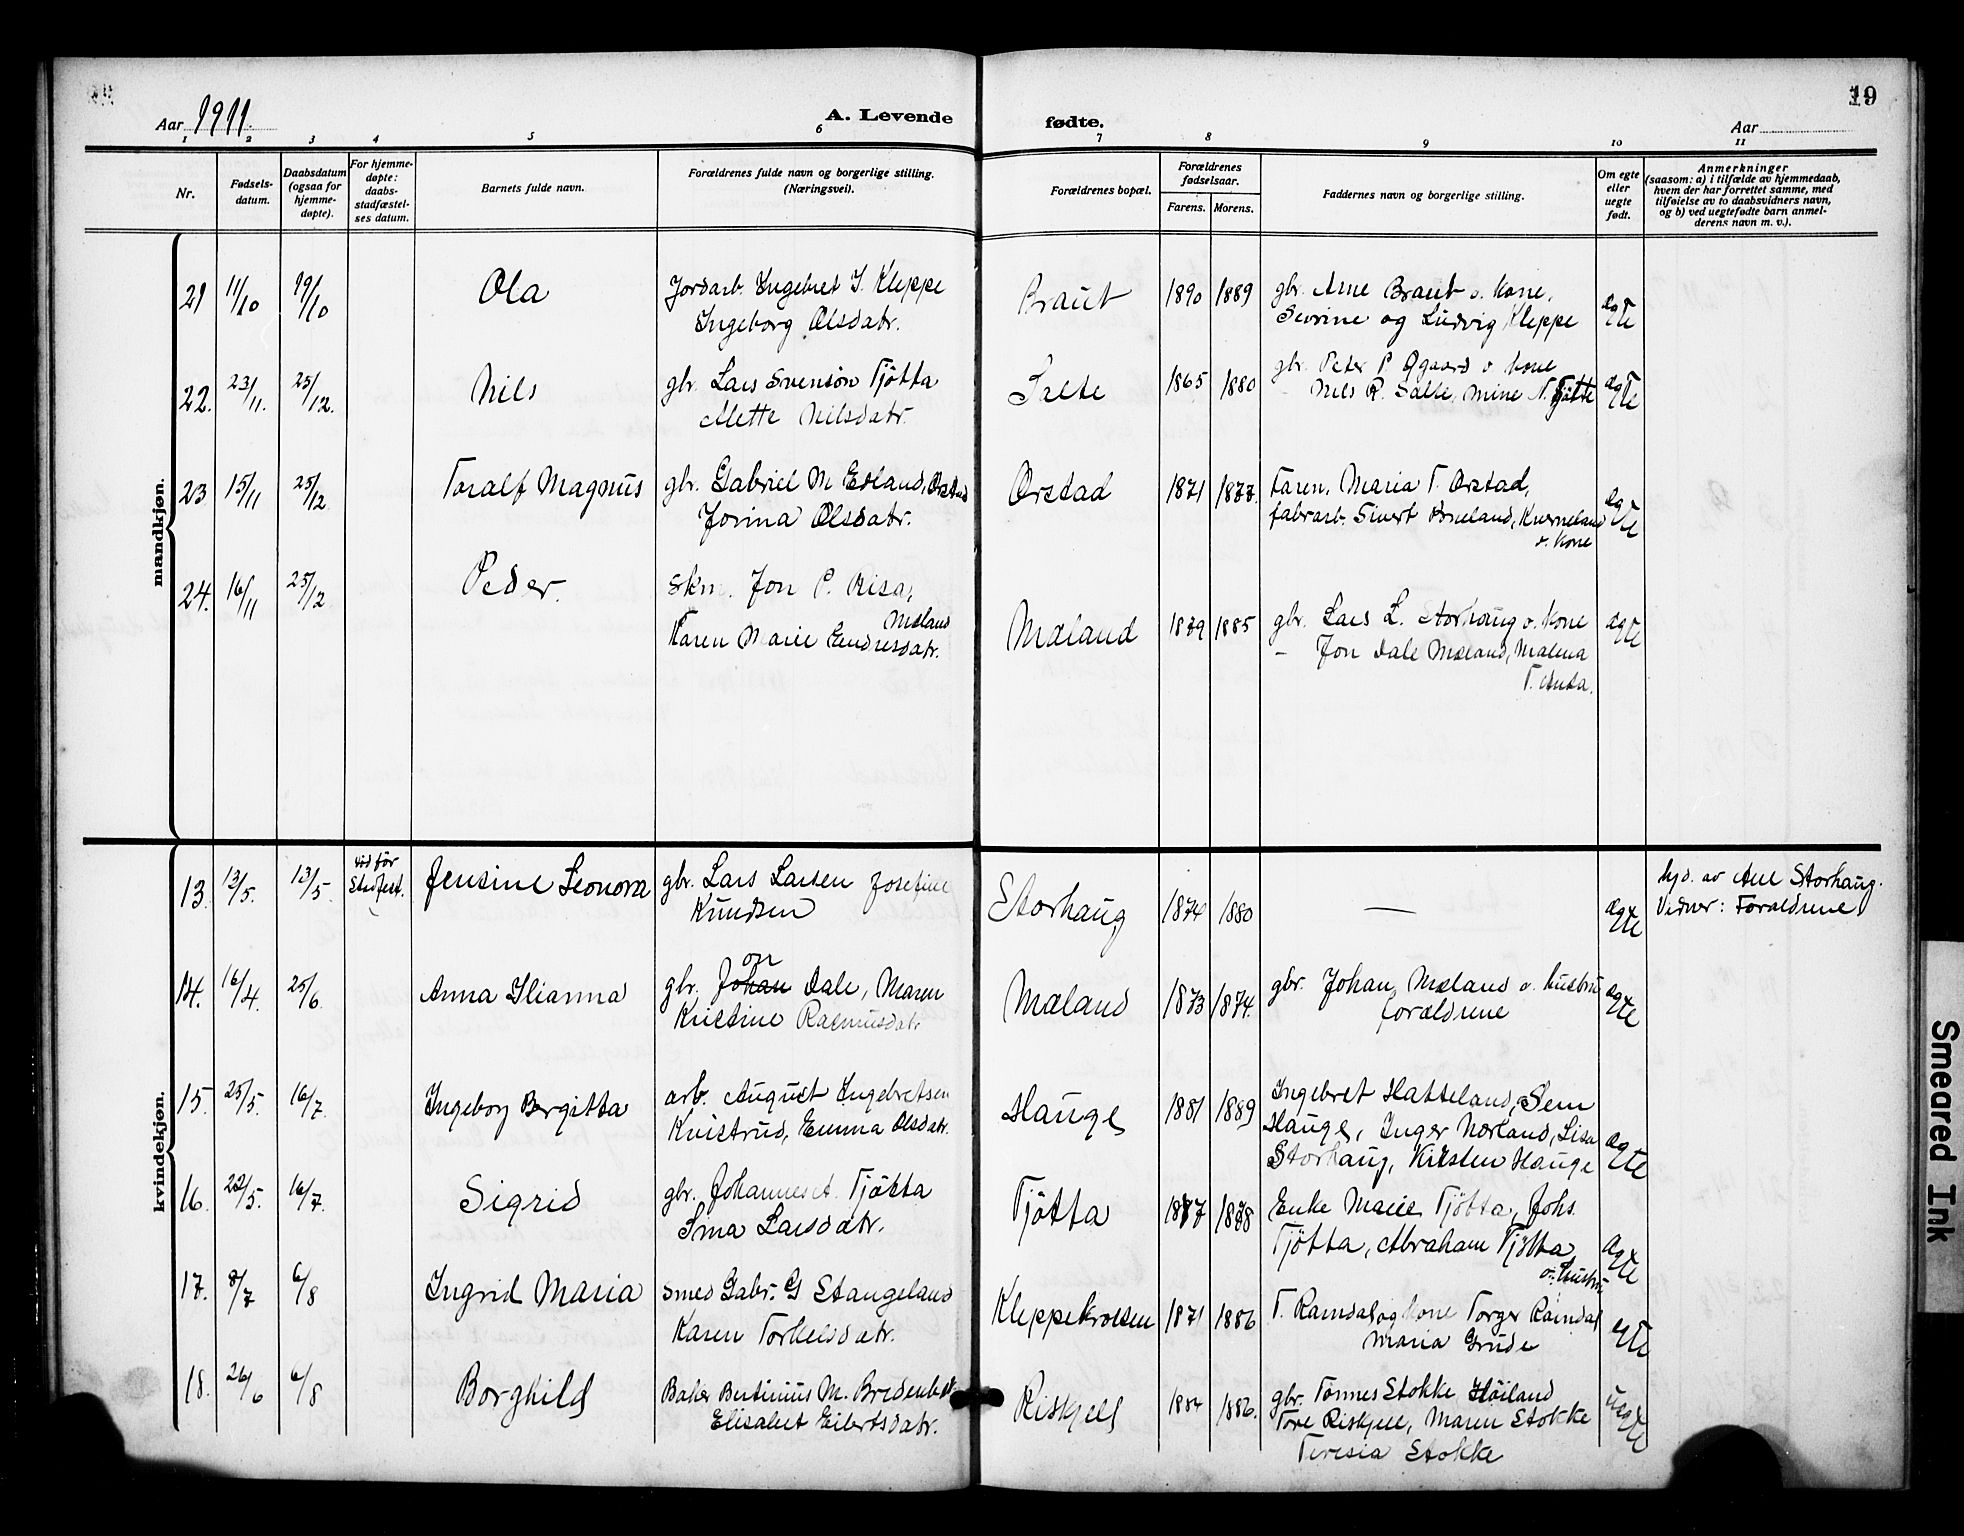 19
Aar 1911.
A. Levende fødte.
Aar
1 2 3 4 5 6 7 8 9 10 11
Nr.
Fødsels-
datum.
Daabsdatum
(ogsaa for
hjemme-
døpte).
For hjemme-
døpte:
daabs-
stadfæstel-
ses datum.
Barnets fulde navn.
Forældrenes fulde navn og borgerlige stilling.
(Næringsvei).
Forældrenes bopæl.
Forældrenes
fødselsaar.
Farens. Morens.
Faddernes navn og borgerlige stilling.
Om egte
eller
uegte
født.
Anmerkninger
(saasom: a) i tilfælde av hjemmedaab,
hvem der har forrettet samme, med
tilføielse av to daabsvidners navn,
og b) ved uegtefødte barn anmel-
derens navn m. v.).
mandkjøn.
21 11/10 19/10 Ola Jordarb. Ingebret I. Kleppe
Ingeborg Olsdatr.
Braut 1890 1889 gbr. Arne Braut o. kone,
Sevrine og Ludvig Kleppe
ægte
22. 23/11. 25/12. Nils gbr. Lars Svenson Tjøtta
Alette Nilsdatr.
Salte 1865 1880 gbr. Peter P. Øgaard o kone
Nils R. Salte, Mine N. Tjøtta
ægte
23 15/11 25/12 Toralf Magnus gbr. Gabriel M Edland, Ørstad
Jorina Olsdatr.
Ørstad 1871 1877. Faren, Maria T. Ørstad,
fabrarb. Sivert Kverneland
o. kone
ægte
24. 16/11 25/12 Peder. Skm. Jon P. Risa,
Mæland
Karen Marie Endresdatr.
Mæland 1879 1885 gbr. Lars L. Storhaug o. kone
– Jon Dale Mæland, Malena
T.
ægte
kvindekjøn.
13. 13/5. 13/5. død før
Stadfest.
Jensine Leonora gbr. Lars Larsen Josefine
Knudsen
Storhaug 1874 1880 —
ægte
hjd. av Ane Storhaug.
Vidner: Forældrene
14. 16/4. 25/6. Anna Ilianna gbr. Johan on Dale, Maren
Kristine Rasmusdatr
Mæland 1873 1874. gbr. Johan Mæland o. hustru
forældrene
ægte
15. 25/5. 16/7. Ingeborg Bergitta arb. August Ingebretsen
Kvistrud, Emma Olsdatr.
Hauge 1881 1889 Ingebret Hatteland, Sem
Hauge, Inger Nærland, Lisa
Storhaug, Kirsten Hauge
ægte
16. 22/5. 16/7. Sigrid gbr. Johannes A. Tjøtta
Sma Larsdatr.
Tjøtta 1877 1878 Enke Marie Tjøtta, Johs.
Tjøtta, Abraham Tjøtta
o. hustru
ægte
17. 8/7 6/8 Ingrid Maria smed Gabr. G Stangeland
Karen Torkelsdatr.
Kleppekrossen 1871 1886 T. Ramdal og kone Torger Ramdal
Maria Grude
egte
18. 26/6 6/8 Borghild Baker Bertinius M. Bredenbek
Elisabet Eilertsdatr.
Riskjell 1884 1886. gbr. Tønnes Stokke Høiland
Tore Riskjell, Maren Stokke
Teresia Stokke
uegte
Smeared Ink